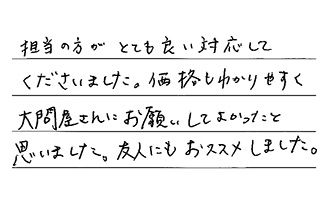 担当の方が とても良い対応して
くださいました。価格もわかりやすく
大問屋さんにお願いしてよかったと
思いました。友人にもおススメしました。